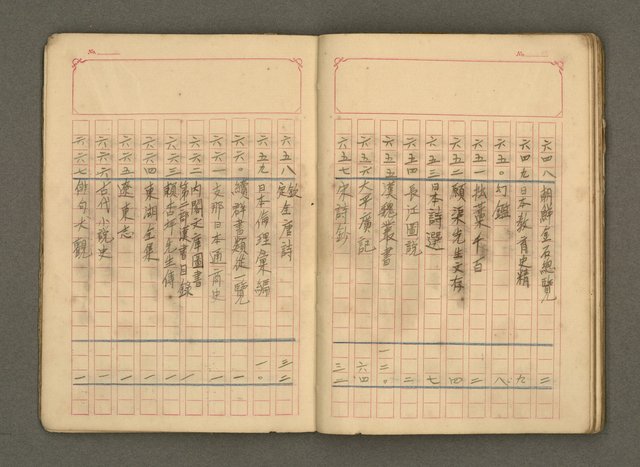 No.
六四八 朝鮮金石總覽 二
六四九 日本教育史精 九
六五〇 幻鑑 八
六五一 拙藁千百 二
六五二 頤渠先生文存 四
六五三 日本詩選 七
六五四 長江圖説 二
六五五 漢魏叢書 一二〇
六五六 太平廣記 六四
六五七 宋詩鈔 三二
No.
六五八 欽定全唐詩 三二
六五九 日本倫理彙編 一〇
六六〇 續群書類從一覽 一
六六一 支那日本通商史 一
六六二 內閣文庫圖書第二部漢書目錄 一
六六三 賴杏坪先生傳 一
六六四 東湖全集 一
六六五 遼東志 一
六六六 古代小説史 一
六六七 俳句大觀 一